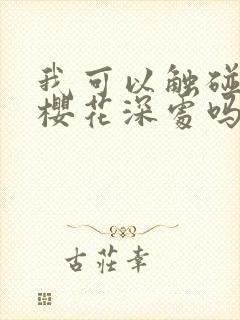 我可以触碰
樱花深处吗
古莊幸